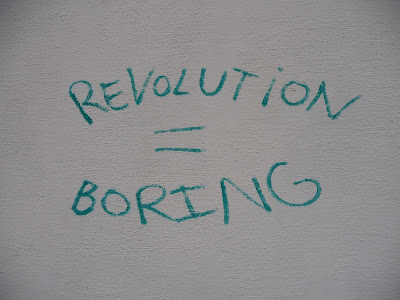 REVOLUTiON
=
BORING